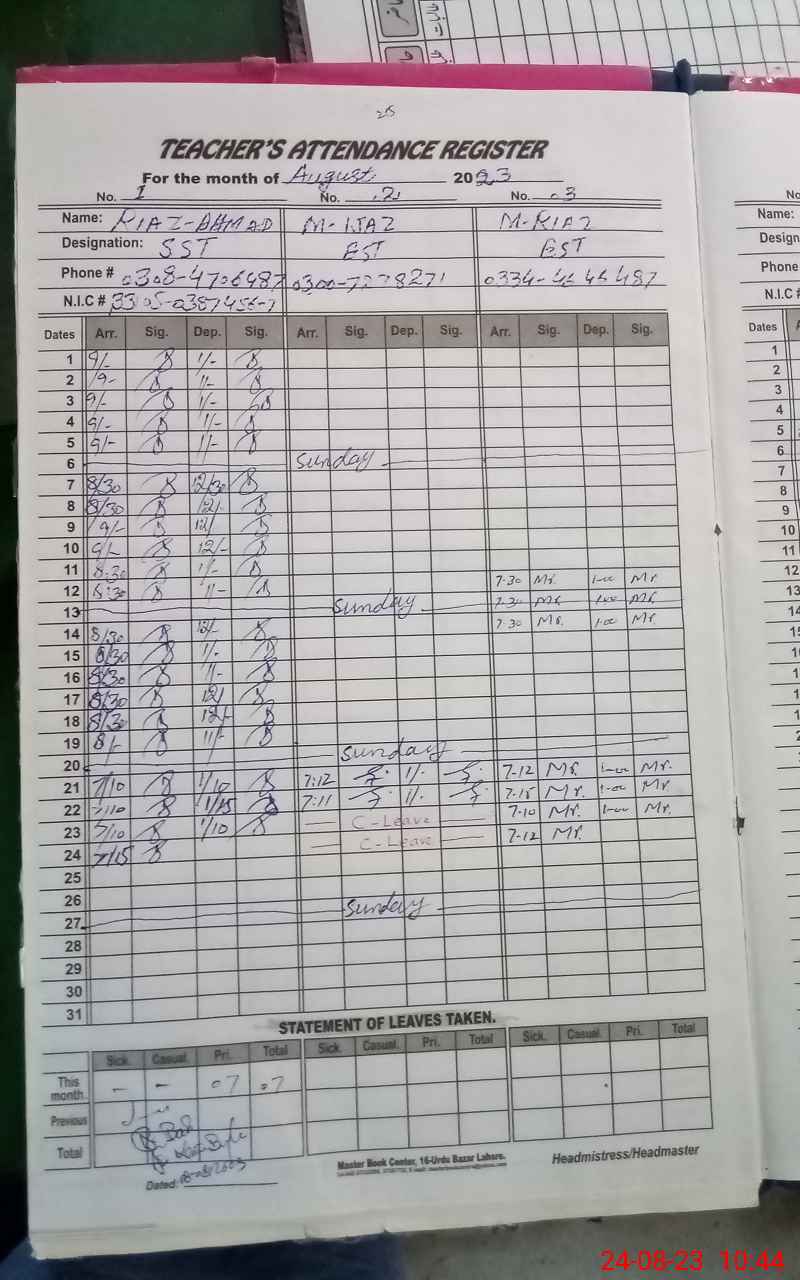 TEACHER'S ATTENDANCE REGISTER
For the month of August 2023
No. 1 No. 2 No. 3
Name: RIAZ-AHMAD M-IJAZ M-RIAZ
Designation: SST EST EST
Phone # 0308-4706487 0300-7278271 0334-4646487
N.I.C #
Dates Arr. Sig. Dep. Sig. Arr. Sig. Dep. Sig. Arr. Sig. Dep. Sig.
1 9/- 1/-
2 9/- 1/-
3 9/- 1/-
4 9/- 1/-
5 9/- 1/-
6 Sunday
7 8/30 12/30
8 8/30 12/-
9 9/- 12/
10 9/- 12/-
11 8:30 1/-
12 8:30 1/- 7-30 Mr. 1-00 Mr
13 Sunday 7-30 Mr 1-00 Mr
14 8/30 12/- 7-30 Mr. 1-00 Mr.
15 8/30 1/-
16 8/30 1/-
17 8/30 12/
18 8/30 12/-
19 8/- 1/-
20 Sunday
21 7/10 1/10 7:12 1/- 7-12 Mr. 1-00 Mr.
22 7/10 1/15 7:11 1/- 7-15 Mr. 1-00 Mr.
23 7/10 1/10 C-Leave 7-10 Mr. 1-00 Mr.
24 7/15 C-Leave 7-12 Mr.
25
26
27 Sunday
28
29
30
31
STATEMENT OF LEAVES TAKEN.
Sick. Casual. Pri. Total Sick. Casual. Pri. Total Sick. Casual. Pri. Total
This month. - - 07 07
Previous
Total
Dated:
Master Book Center, 16-Urdu Bazar Lahore.
Headmistress/Headmaster
No
Name:
Design
Phone
N.I.C #
Dates
1
2
3
4
5
6
7
8
9
10
11
12
13
14
24-08-23 10:44